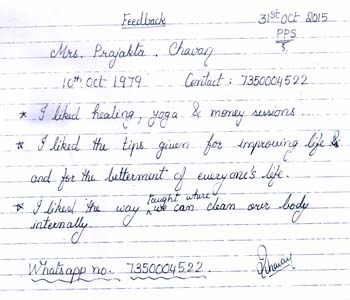 Feedback 31st Oct 2015
PPS
Mrs. Prajakta. Chavan
10th Oct 1979 Contact : 7350004522
* I liked healing, yoga & money sessions.
* I liked the tips given for improving life &
and for the betterment of everyone's life.
* I liked the way taught where we can clean our body
internally.
Whatsapp no. 7350004522.
PChavan